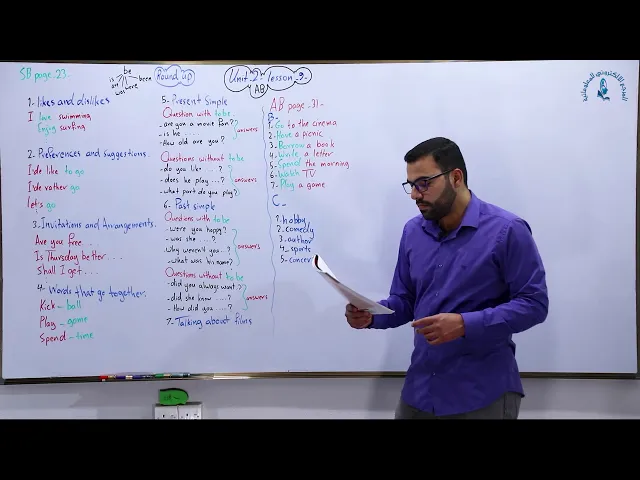 SB page. 23.
be
is
been
are
was
were
Round up
Unit. 2. lesson 9.
AB
1- likes and dislikes
I love swimming
Enjoy surfing
2. Preferences and suggestions.
I'de like to go
I'de rather go
let's go
3. Invitations and Arrangements.
Are you free . . .
Is Thursday better . . .
Shall I get . . .
4. Words that go together.
Kick - ball
Play - game
Spend - time
5- Present Simple
Question with to be
- are you a movie fan?
- is he . . . . ?
- How old are you?
answers
Questions without to be
- do you like . . . ?
- does he play . . . ?
- what part do you play?
answers
6- Past simple
Questions with to be
- were you happy?
- was she . . . . ?
why weren't you . . ?
- what was his name?
answers
Questions without to be
- did you always want . . ?
- did she know . . . . ?
- How did you . . . ?
answers
7- Talking about films
AB page . 31 -
B-
1- Go to the cinema
2. Have a picnic
3- Borrow a book
4- Write a letter
5- Spend the morning
6- Watch TV
7- Play a game
C -
1- hobby
2- comedy
3- author
4- sports
5- concer